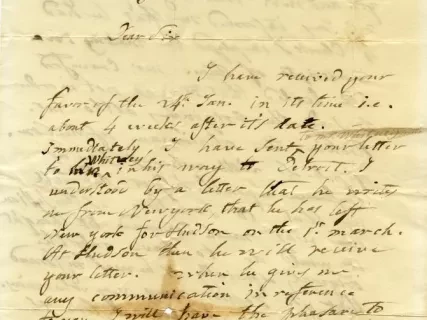 Dear Sir
I have received your
favor of the 24th Jan. in its time i.e.
about 4 weeks after it's date.
Immediately, I have sent your letter
to Whiteley in his way to Detroit. I
understood by a letter that he writes
me from Newyork that he has left
New york for Hudson on the 1st march.
At Hudson then he will receive
your letter. When he gives me
any communication in reference
to you I will have the pleasure to